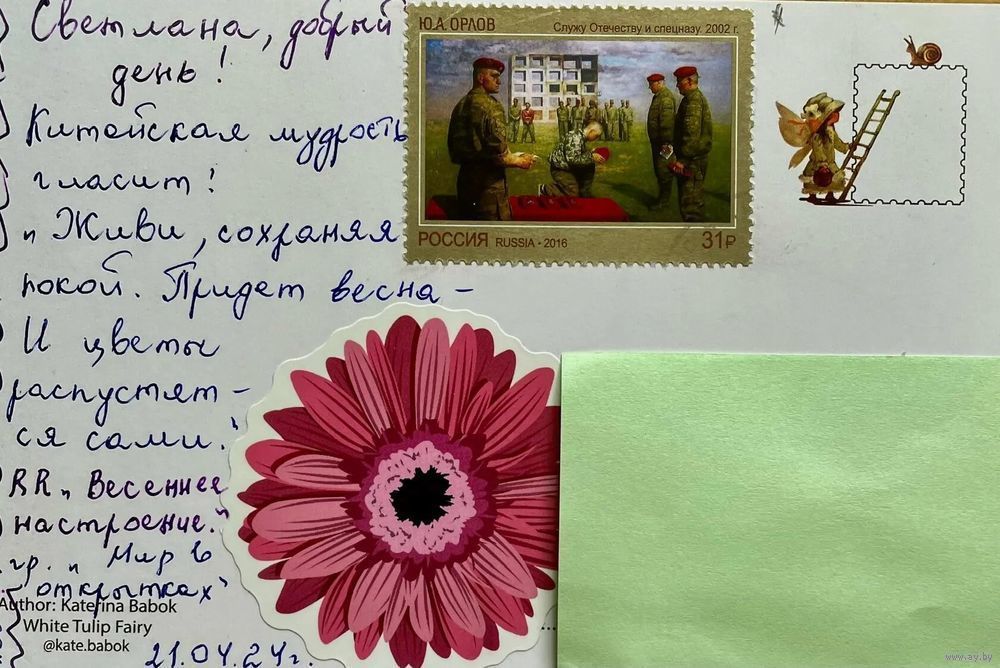 Светлана, добрый
день!
Китайская мудрость
гласит!
„Живи, сохраняя
покой. Придет весна –
И цветы
распустят-
ся сами."
RR „Весеннее
настроение."
гр. „Мир в
открытках"
Author: Katerina Babok
White Tulip Fairy
@kate.babok
21.04.24г.
Ю.А. ОРЛОВ
Служу Отечеству и спецназу. 2002 г.
РОССИЯ RUSSIA • 2016
31₽
www.ay.by